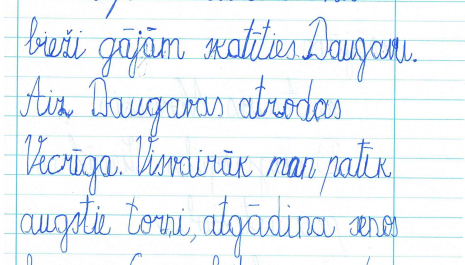 bieži gājām skatīties Daugavu.
Aiz Daugavas atrodas
Vecrīga. Visvairāk man patīk
augstie torņi, atgādina senos